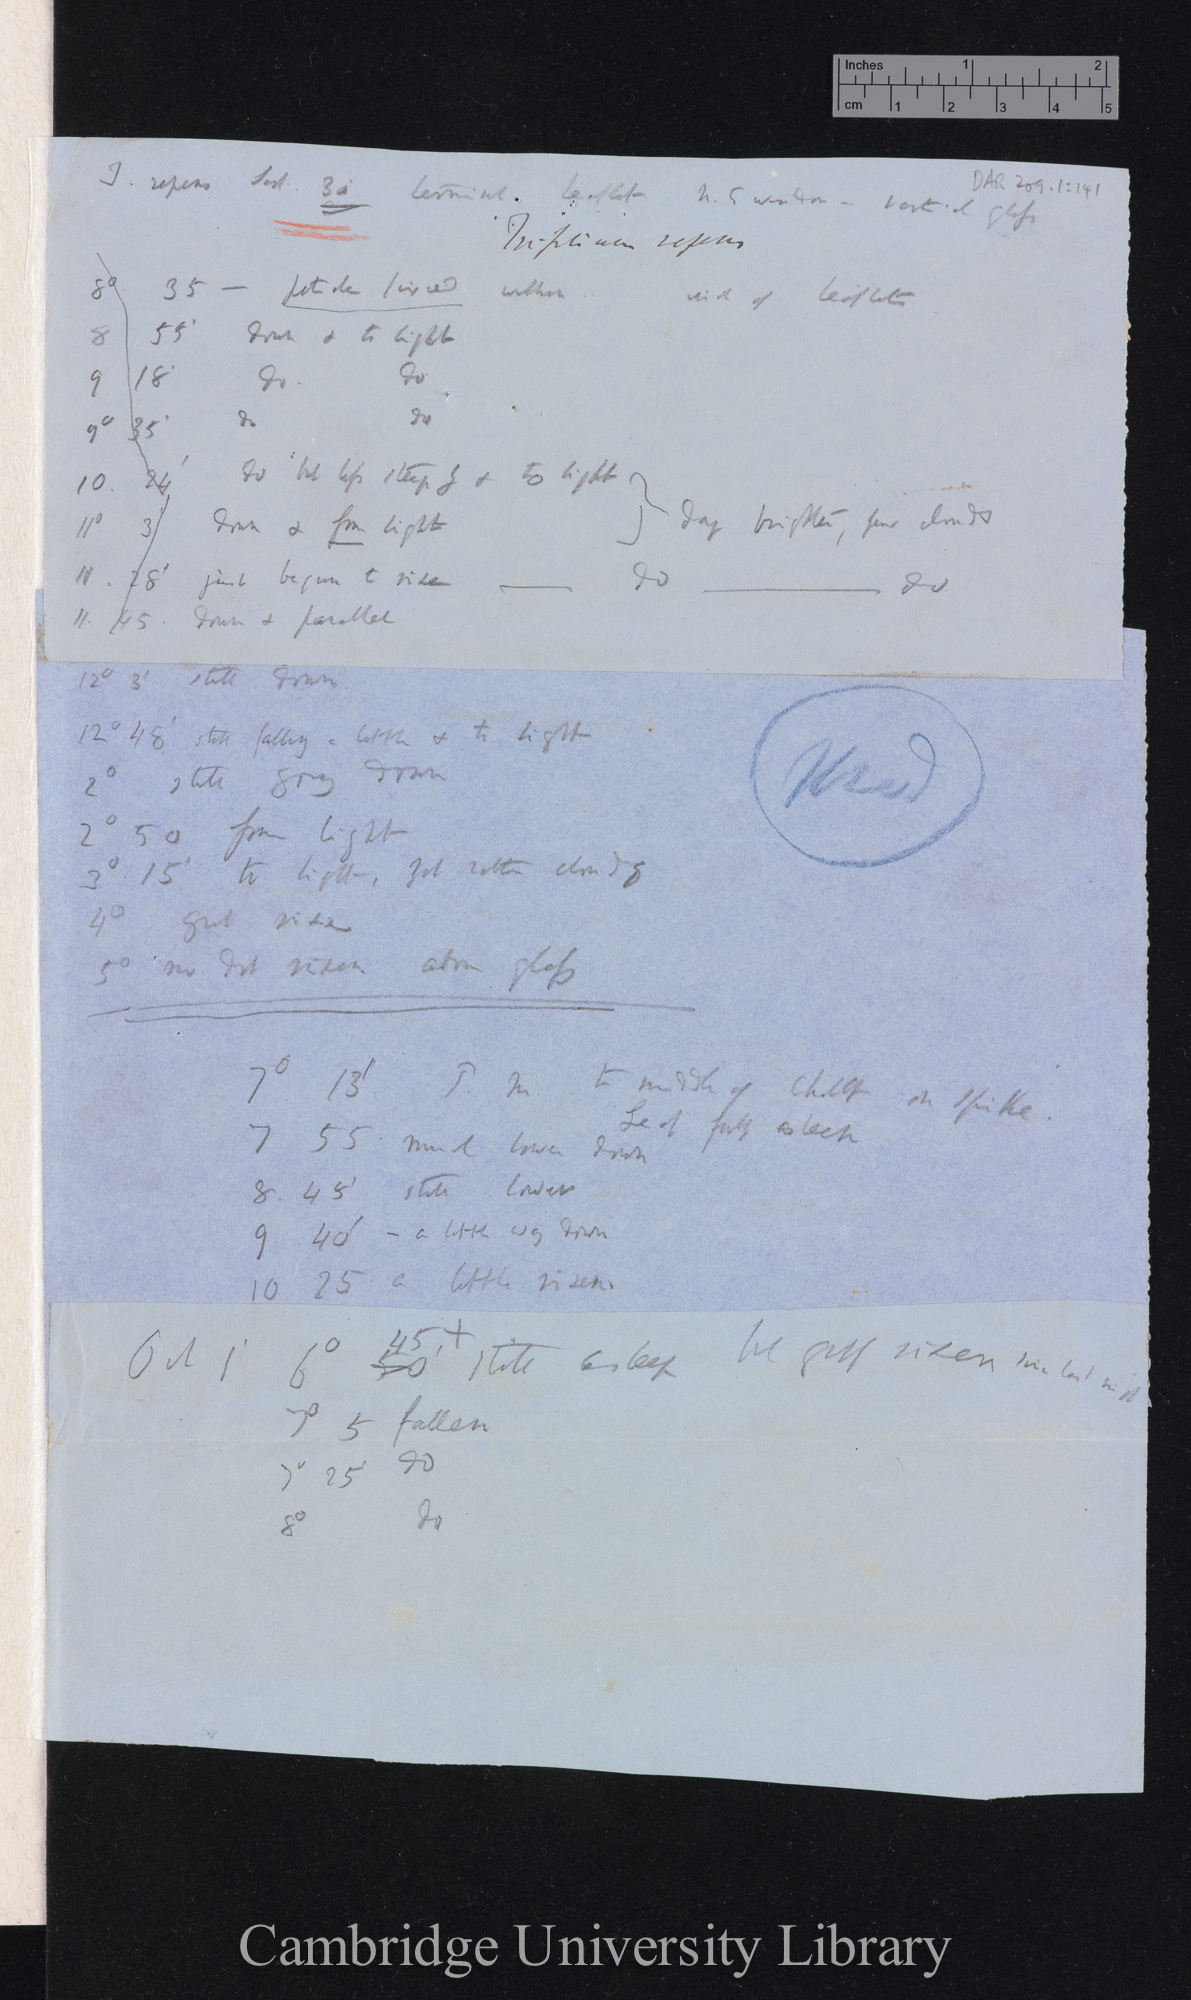 Inches 1 2
cm 1 2 3 4 5
DAR 209.1:141
T. repens Sept. 30 terminal leaflet N.E window - vertical glass
Trifolium repens
8° 35 — petiole fixed within of leaflets
8 55' down & to light
9 18' do. do
9° 35' do do
10. 24' do but less steeply & to light
11° 3' down & from light } day brighter, few clouds
11. 28' just begun to rise — do — do
11. 45. down & parallel
12° 3' still down
12° 48' still falling a little & to light
2° still going down
2° 50 from light
3° 15' to light, got rather cloudy
4° great rise
5° no dot risen above glass
7° 13' P. M. to middle of on spike.
Leaf fully asleep
7 55 much lower down
8. 45' still lower
9 40' - a little way down
10 25 a little risen
Used
Oct 1 6° 45'+ still asleep but greatly risen since last night
7° 5 fallen
7° 25' do
8° do
Cambridge University Library